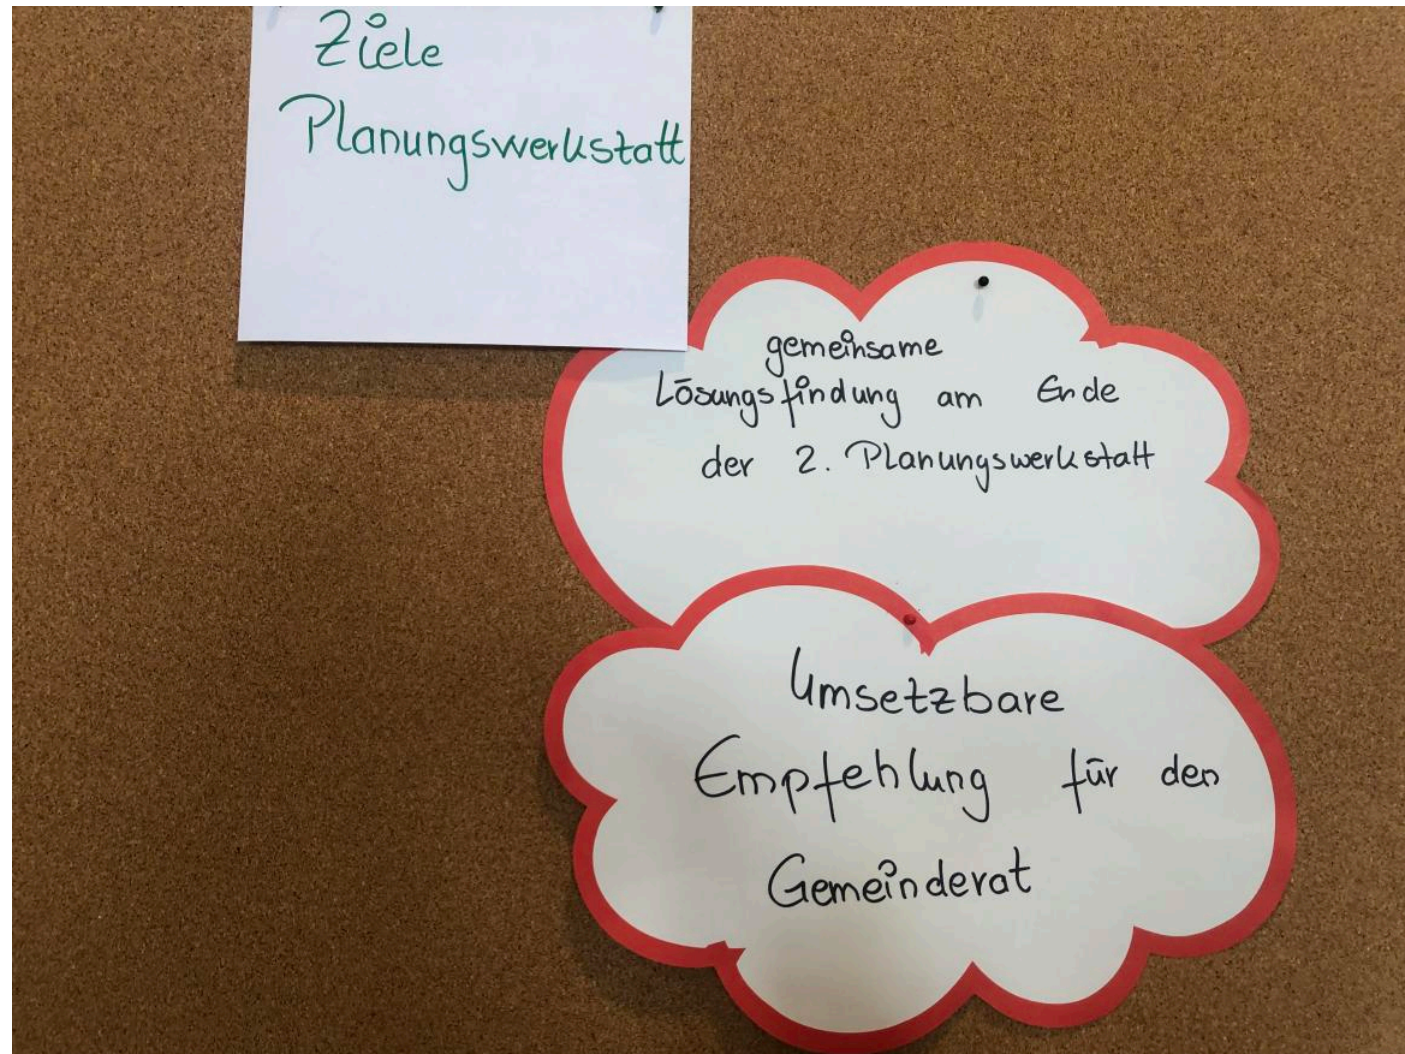 Ziele
Planungswerkstatt
gemeinsame
Lösungsfindung am Ende
der 2. Planungswerkstatt
Umsetzbare
Empfehlung für den
Gemeinderat